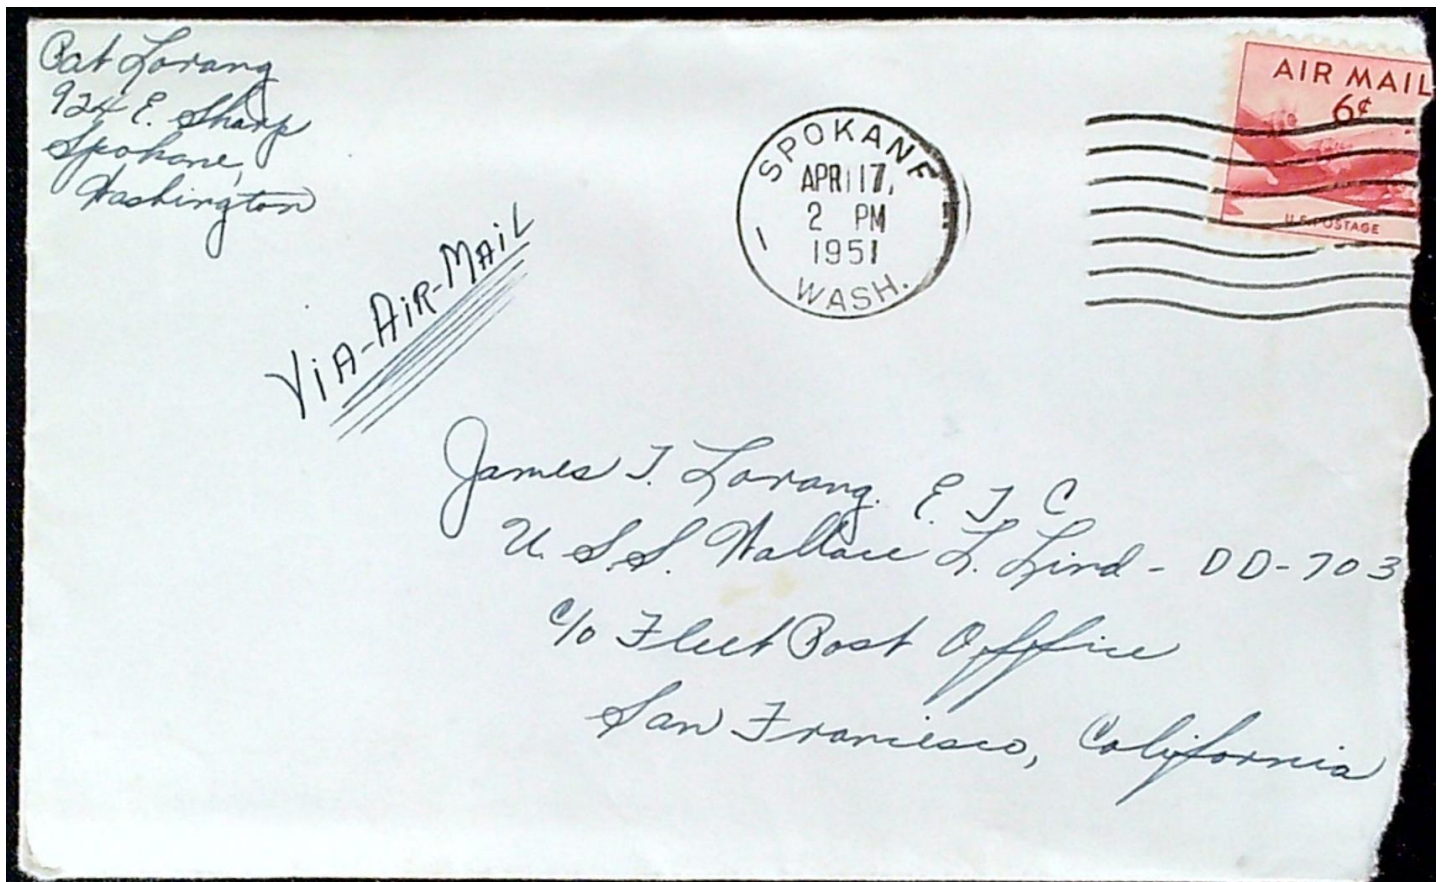 Pat Lorang
924 E. Sharp
Spokane,
Washington
VIA-AIR-MAIL
SPOKANE
APR 17,
2 PM
1951
WASH.
AIR MAIL
6¢
U.S. POSTAGE
James T. Lorang. E. T C
U. S. S. Wallace L. Lind - DD-703
c/o Fleet Post Office
San Francisco, California